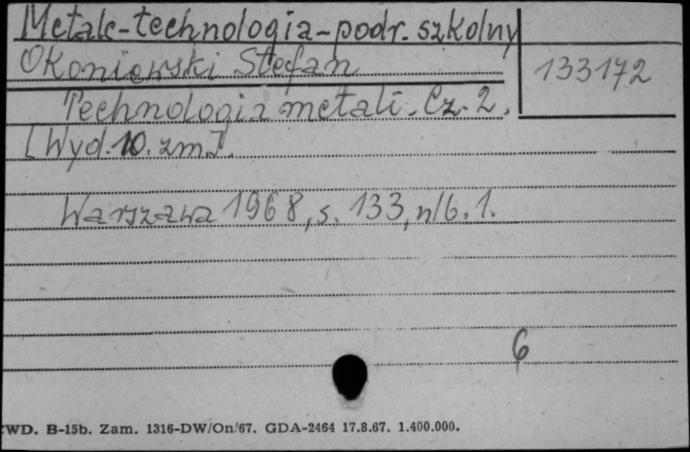 Metale-technologia-podr. szkolny
Okoniewski Stefan
133172
Technologia metali. Cz. 2.
[Wyd. 10. zm.].
Warszawa 1968, s. 133, nlb. 1.
6
WD. B-15b. Zam. 1316-DW/On/67. GDA-2464 17.8.67. 1.400.000.